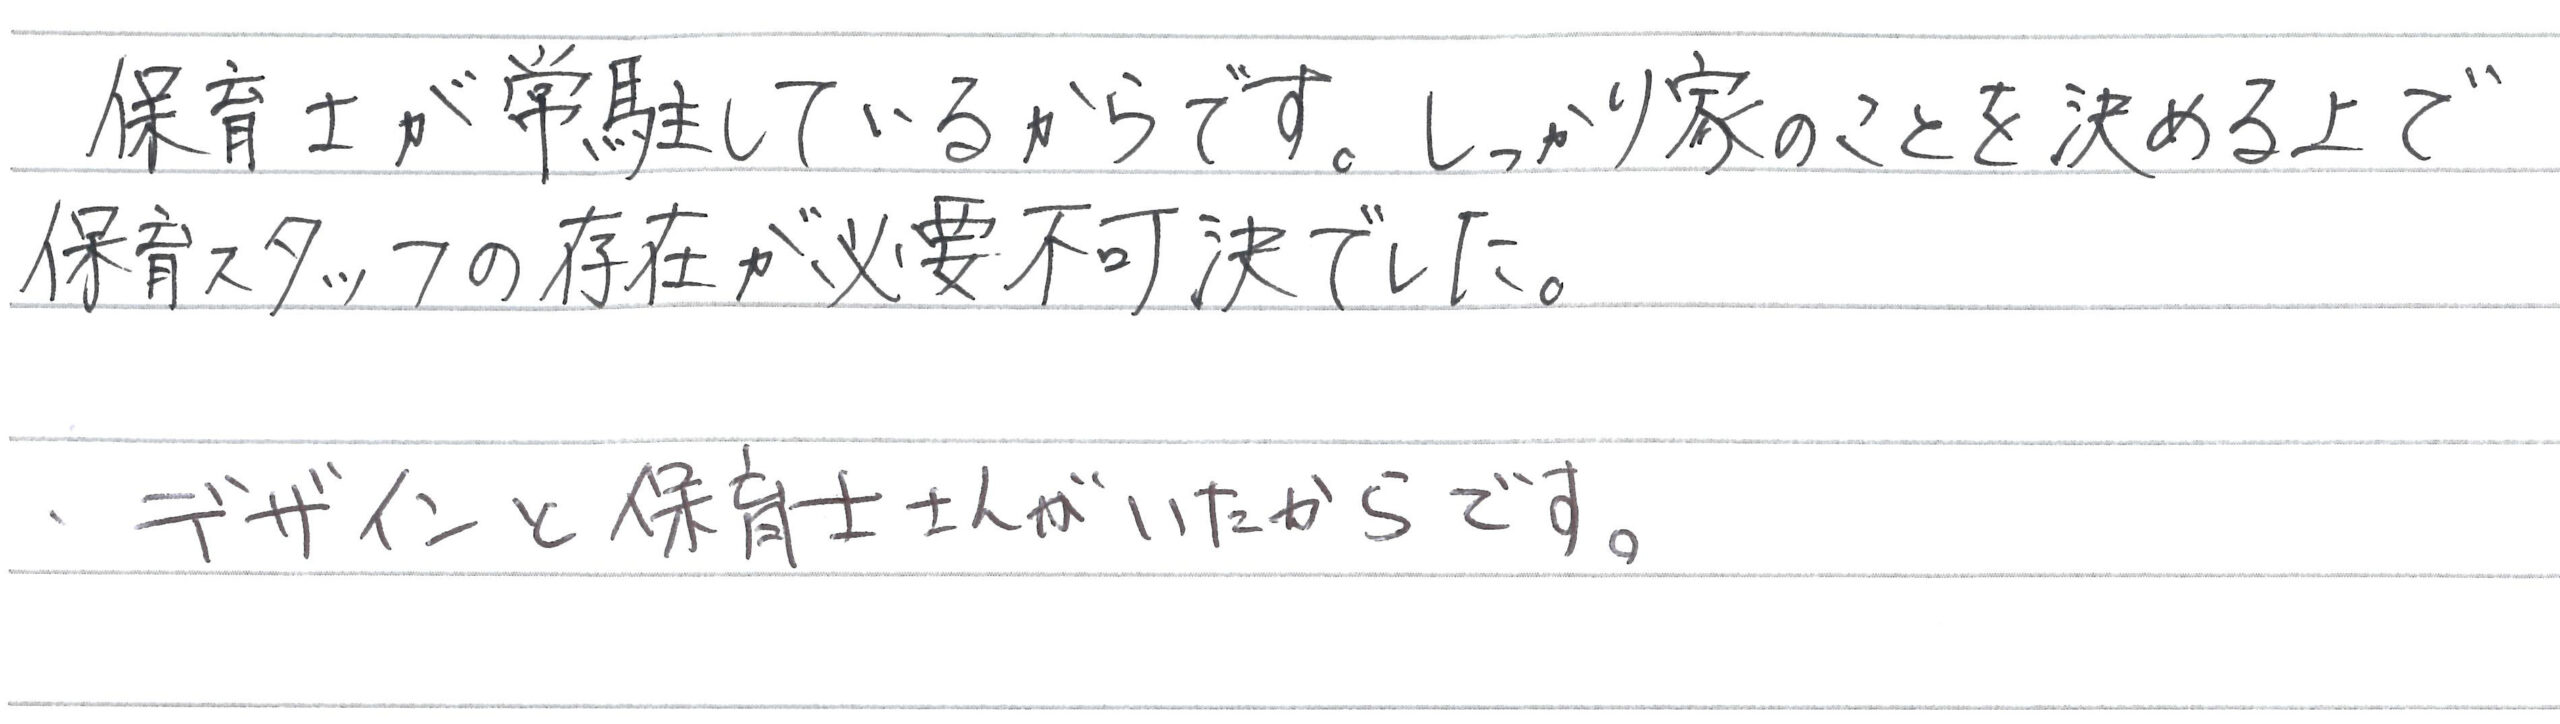 保育士が常駐しているからです。しっかり家のことを決める上で
保育スタッフの存在が必要不可決でした。
、デザインと保育士さんがいたからです。